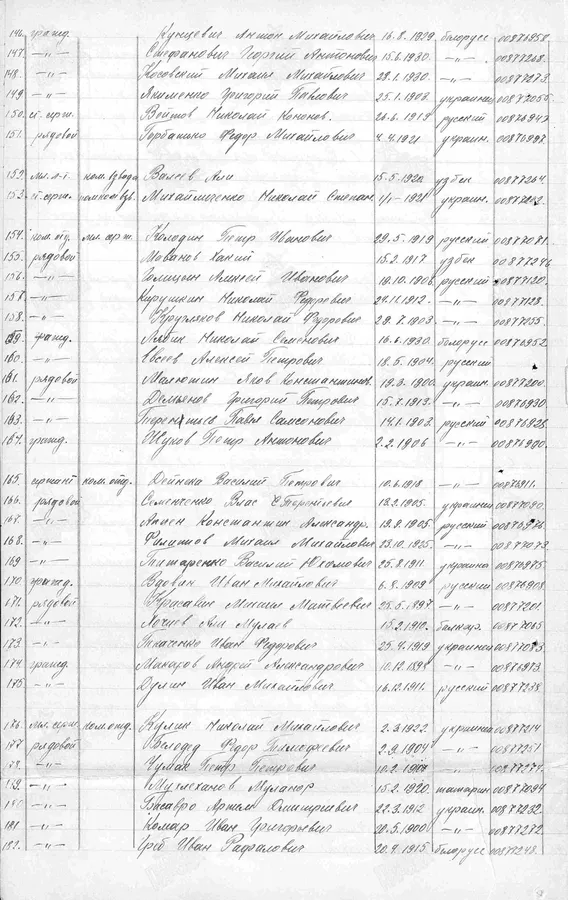 146. гражд. Кунцевич Антон Михайлович 16.8.1929 белорусс 00876958.
147. -"- Стефанович Георгий Антонович 15.6.1930. -"- 00877268.
148. -"- Косовский Михаил Михайлович 28.1.1930. -"- 00877273.
149. -"- Якименко Григорий Павлович 25.1.1903. украинец 00877055.
150. ст. серж. Войтов Николай Кононов. 26.6.1913 русский 00876947.
151. рядовой Горбатко Федор Михайлович 4.4.1921 украин. 00876997.
152. мл. л-т ком. взвода Валеев Али 15.5.1922 узбек 00877264.
153. ст. серж. помком взв. Михайличенко Николай Степан. 1921 украин.
154. ком. отд. мл. серж. Колодин Петр Иванович 29.5.1919 русский 00877071.
155. рядовой Мованов Ханий 15.2.1917 узбек 00877246.
156. -"- Голицын Алексей Иванович 19.10.1906 русский 00877120.
157. -"- Кирушкин Николай Федорович 24.11.1912. -"- 00877128.
158. -"- Кругляков Николай Федорович 29.7.1903. -"- 00877255.
159. гражд. Лябик Николай Семенович 16.6.1930. белорусс 00876952.
160. -"- Евсеев Алексей Петрович 18.5.1904. русский
161. рядовой Малютин Яков Константинов. 19.3.1900. украин. 00877200.
162. -"- Демьянов Григорий Петрович 15.7.1913. -"- 00876930
163. -"- Терентьев Павел Самсонович 14.1.1903. русский 00876928.
164. гражд. Шуков Петр Антонович 2.2.1906 -"- 00876900.
165. сержант ком. отд. Дейнека Василий Петрович 10.6.1918 -"- 00876911.
166. рядовой Семенченко Влас 13.2.1905. украинец 00877090.
167. -"- Апиен Константин Александр. 19.9.1905. русский
168. -"- Филиппов Михаил Михайлович 23.10.1925. -"- 00877073.
169 -"- Титаренко Василий Юхимович 25.8.1911 украинец 00876975.
170 гражд. Вдовин Иван Михайлович 6.8.1909 русский 00876908.
171. рядовой Красавин Михаил Матвеевич 25.5.1897. -"- 00877201.
172. -"- Лочиев Али Мулаев 15.2.1910. балкар. 00877065
173. -"- Ткаченко Иван Федорович 25.4.1919 украинец 00877083.
174. гражд. Макаров Андрей Александрович 10.12.1891 -"- 00876973.
175 -"- Дулин Иван Михайлович 16.12.1911. русский 00877238.
176. мл. серж. ком. отд. Кулик Николай Михайлович 2.3.1922. украинец 00877214
177. рядовой Белодед Федор Тимофеевич 2.9.1904 -"- 00877251.
178. -"- Чумак Петр Петрович 10.2. -"- 00877271.
179. -"- Муллаханов Муланор 15.2.1920. татарин 00877094
180. -"- Басавро Артем Дмитриевич 22.3.1912 украин. 00877232.
181 -"- Комар Иван Григорьевич 20.5.1900 -"- 00877272
182. -"- Гриб Иван Рафалович 20.9.1915 белорусс 00877248.